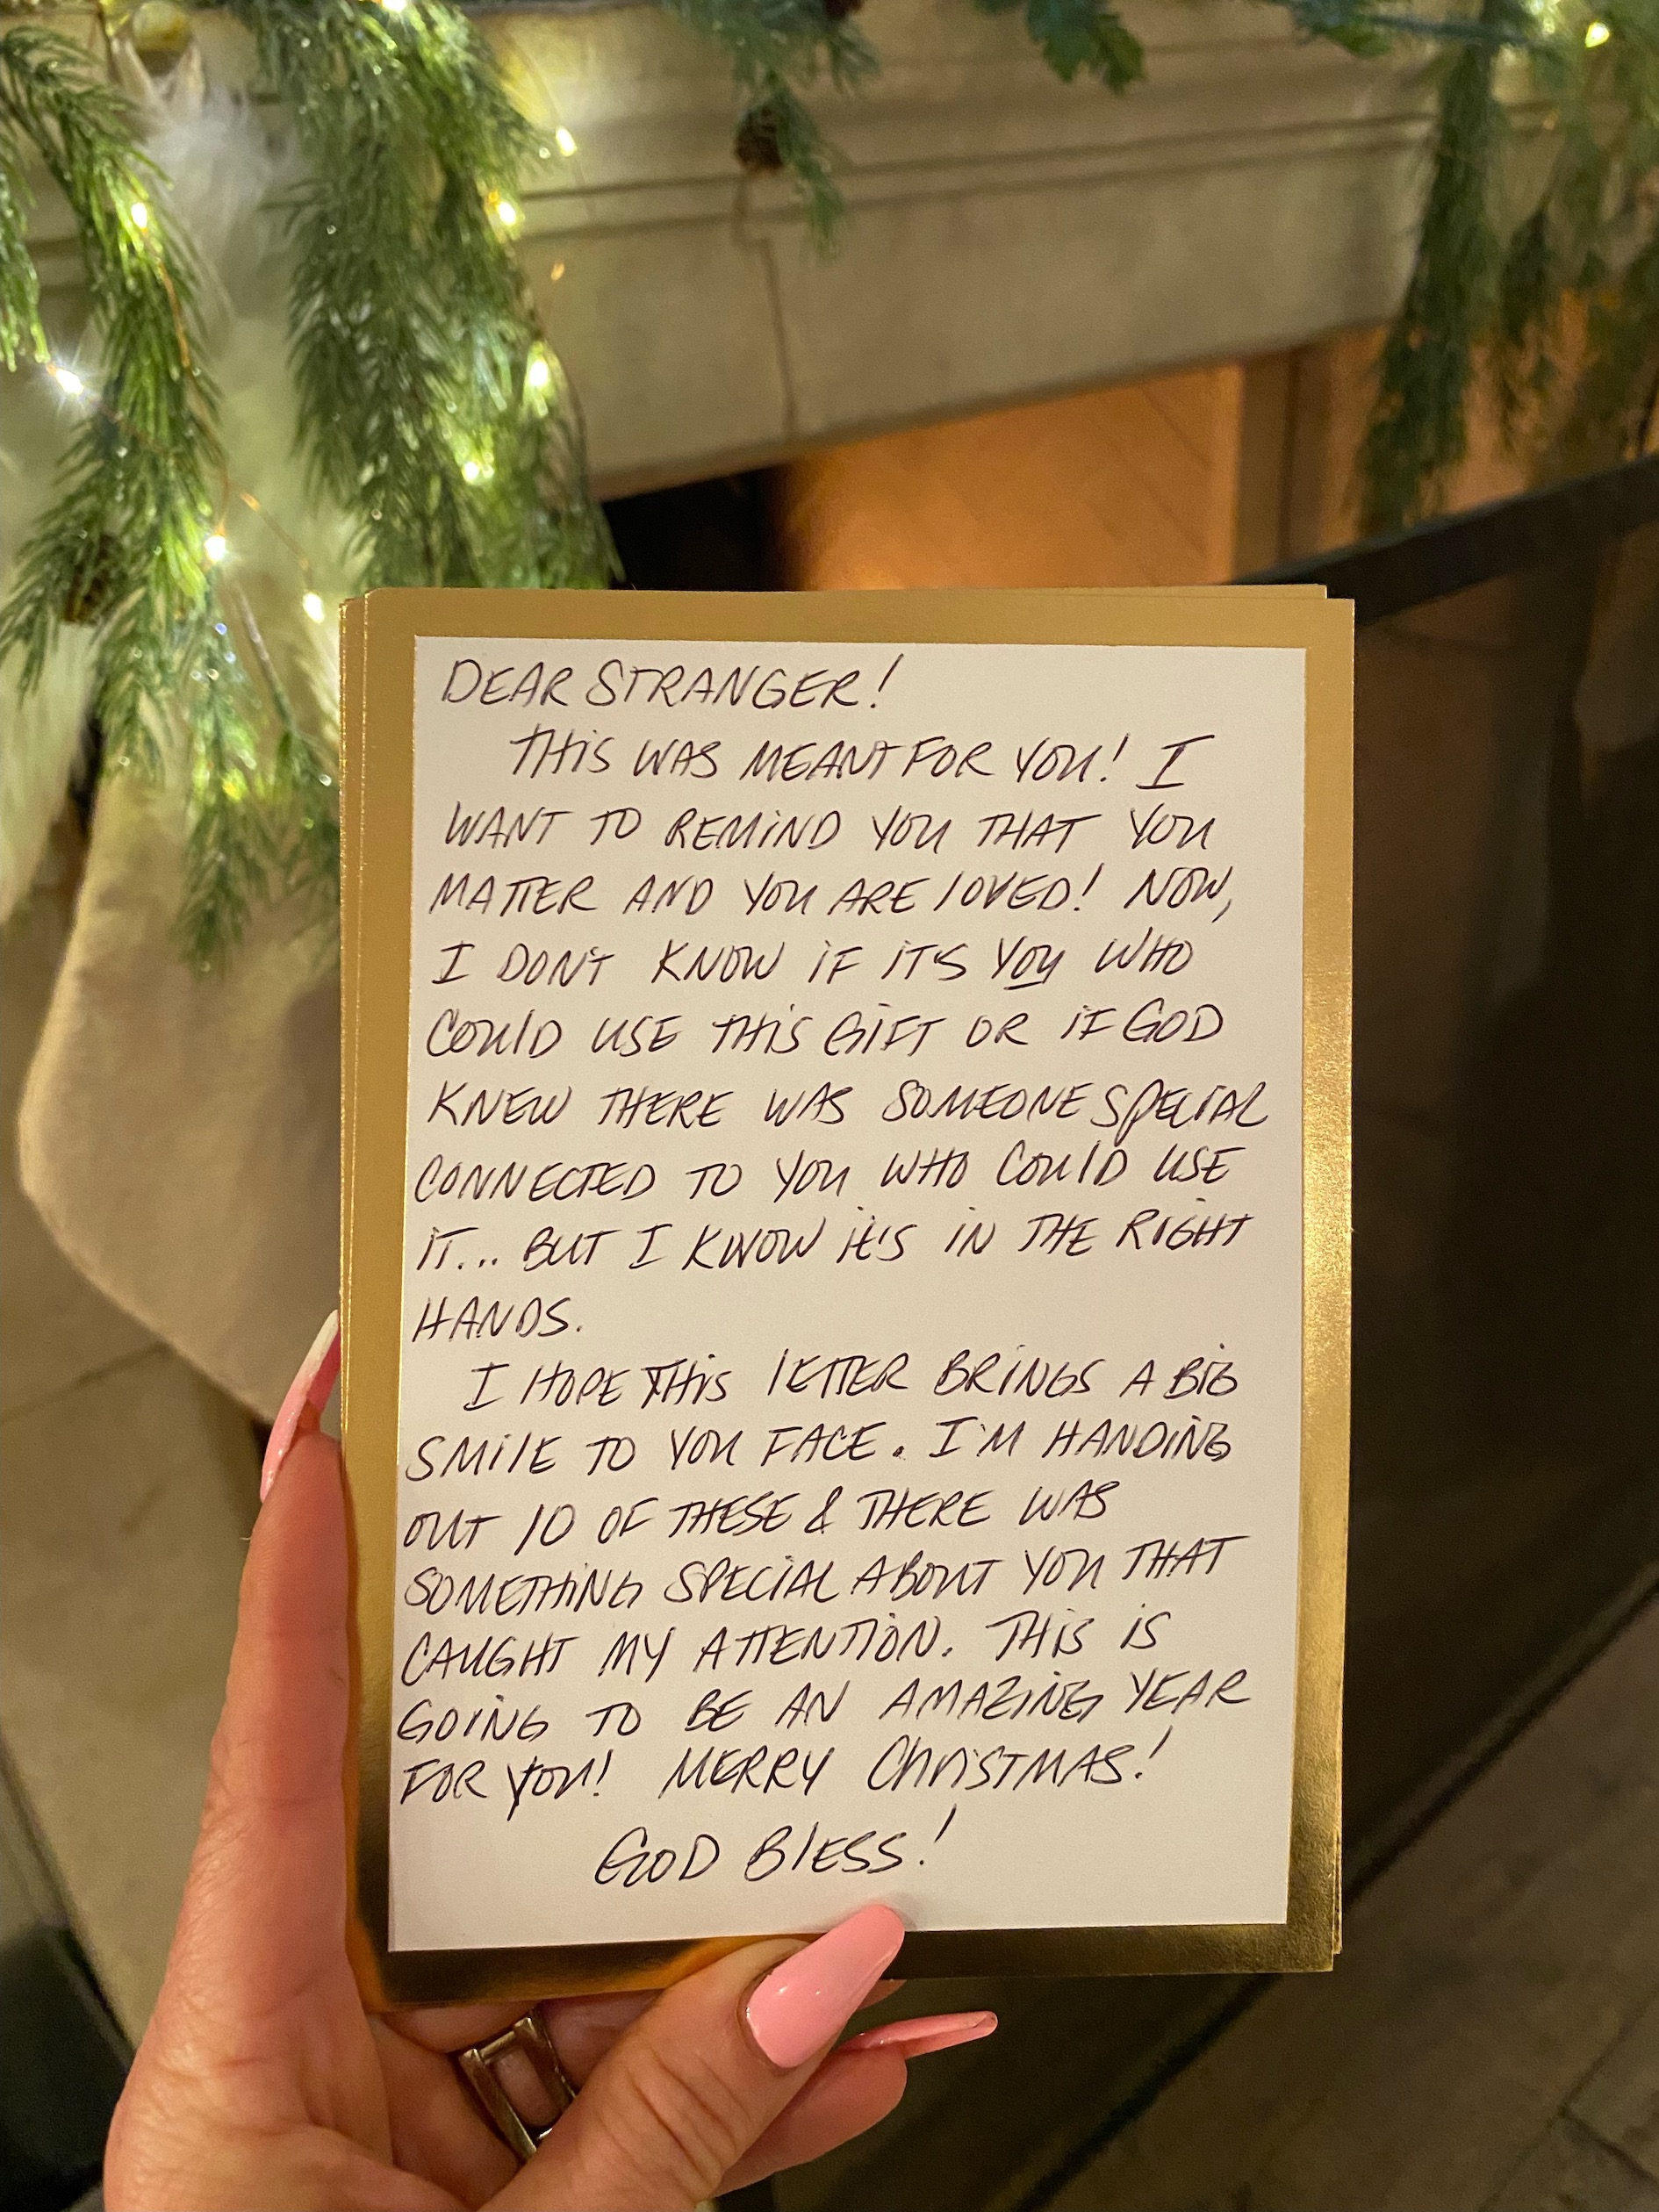 DEAR STRANGER!
THIS WAS MEANT FOR YOU! I
WANT TO REMIND YOU THAT YOU
MATTER AND YOU ARE LOVED! NOW,
I DON'T KNOW IF IT'S YOU WHO
COULD USE THIS GIFT OR IF GOD
KNEW THERE WAS SOMEONE SPECIAL
CONNECTED TO YOU WHO COULD USE
IT... BUT I KNOW IT'S IN THE RIGHT
HANDS.
I HOPE THIS LETTER BRINGS A BIG
SMILE TO YOU FACE. I'M HANDING
OUT 10 OF THESE & THERE WAS
SOMETHING SPECIAL ABOUT YOU THAT
CAUGHT MY ATTENTION. THIS IS
GOING TO BE AN AMAZING YEAR
FOR YOU! MERRY CHRISTMAS!
GOD BLESS!